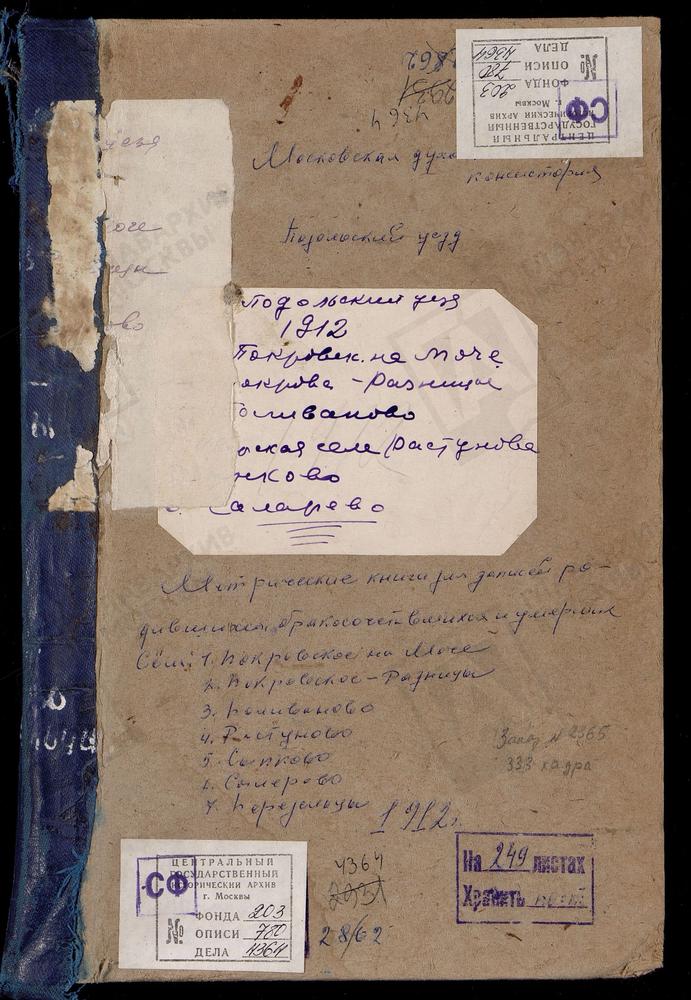 2862
4364
ЦЕНТРАЛЬНЫЙ
ГОСУДАРСТВЕННЫЙ
ИСТОРИЧЕСКИЙ АРХИВ
г. Москвы
СФ
№
ФОНДА 203
ОПИСИ 780
ДЕЛА 4364
Московская духо
консистория
Подольский уезд
уезд
оче
ово
Подольский уезд
1912
Покровск. на Моче
окрова - Разницы
оливаново
ская село Растунова
нково
Саларево
Метрические книги для записей ро-
дившихся, бракосочетавшихся и умерших
Сёл: 1. Покровское на Моче
2. Покровское - Разницы
3. Коливаново
4. Растуново
5. Сынково
6. Сыларево
7.
1912г.
Заказ № 2365
333 кадра
ЦЕНТРАЛЬНЫЙ
ГОСУДАРСТВЕННЫЙ
ИСТОРИЧЕСКИЙ АРХИВ
г. Москвы
СФ
№
ФОНДА 203
ОПИСИ 780
ДЕЛА 4364
4364
2862
На 249 листах
Хранить пост.